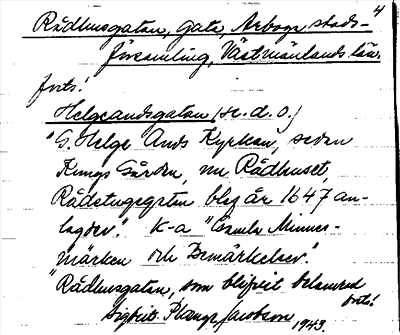 4
Rådhusgatan, gata, Arboga stads-
församling, Västmanlands län.
forts!
Helgeandsgatan (se. d. o.)
"S. Helge Ands Kyrkan, sedan
Kungs Gården, nu Rådhuset,
Rådstugugatan blef år 1647 an-
lagder." K-a "Gamla Minnes-
märken och Bemärkelser."
"Rådhusgatan, som blifvit benämnd
forts!
Sigbrit Plænge Jacobson
1943.